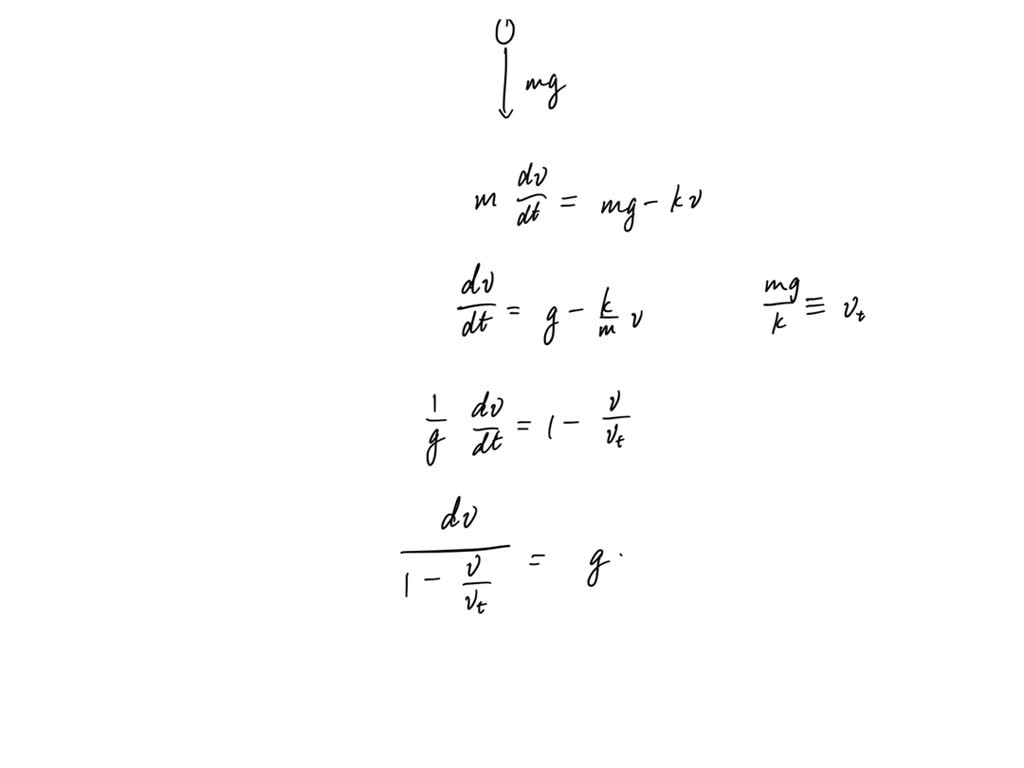 mg
m dv/dt = mg - kv
dv/dt = g - k/m v    mg/k ≡ v_t
1/g dv/dt = 1 - v/v_t
dv/(1 - v/v_t) = g ·